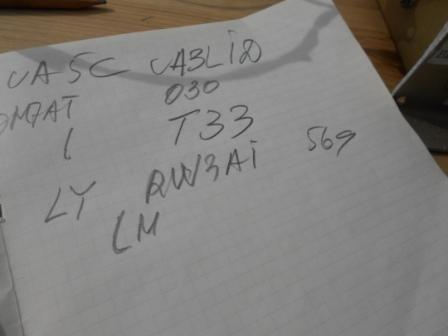 UA5C UA3LiD
OM7AT 030
( T33
LY RW3Ai 569
LM